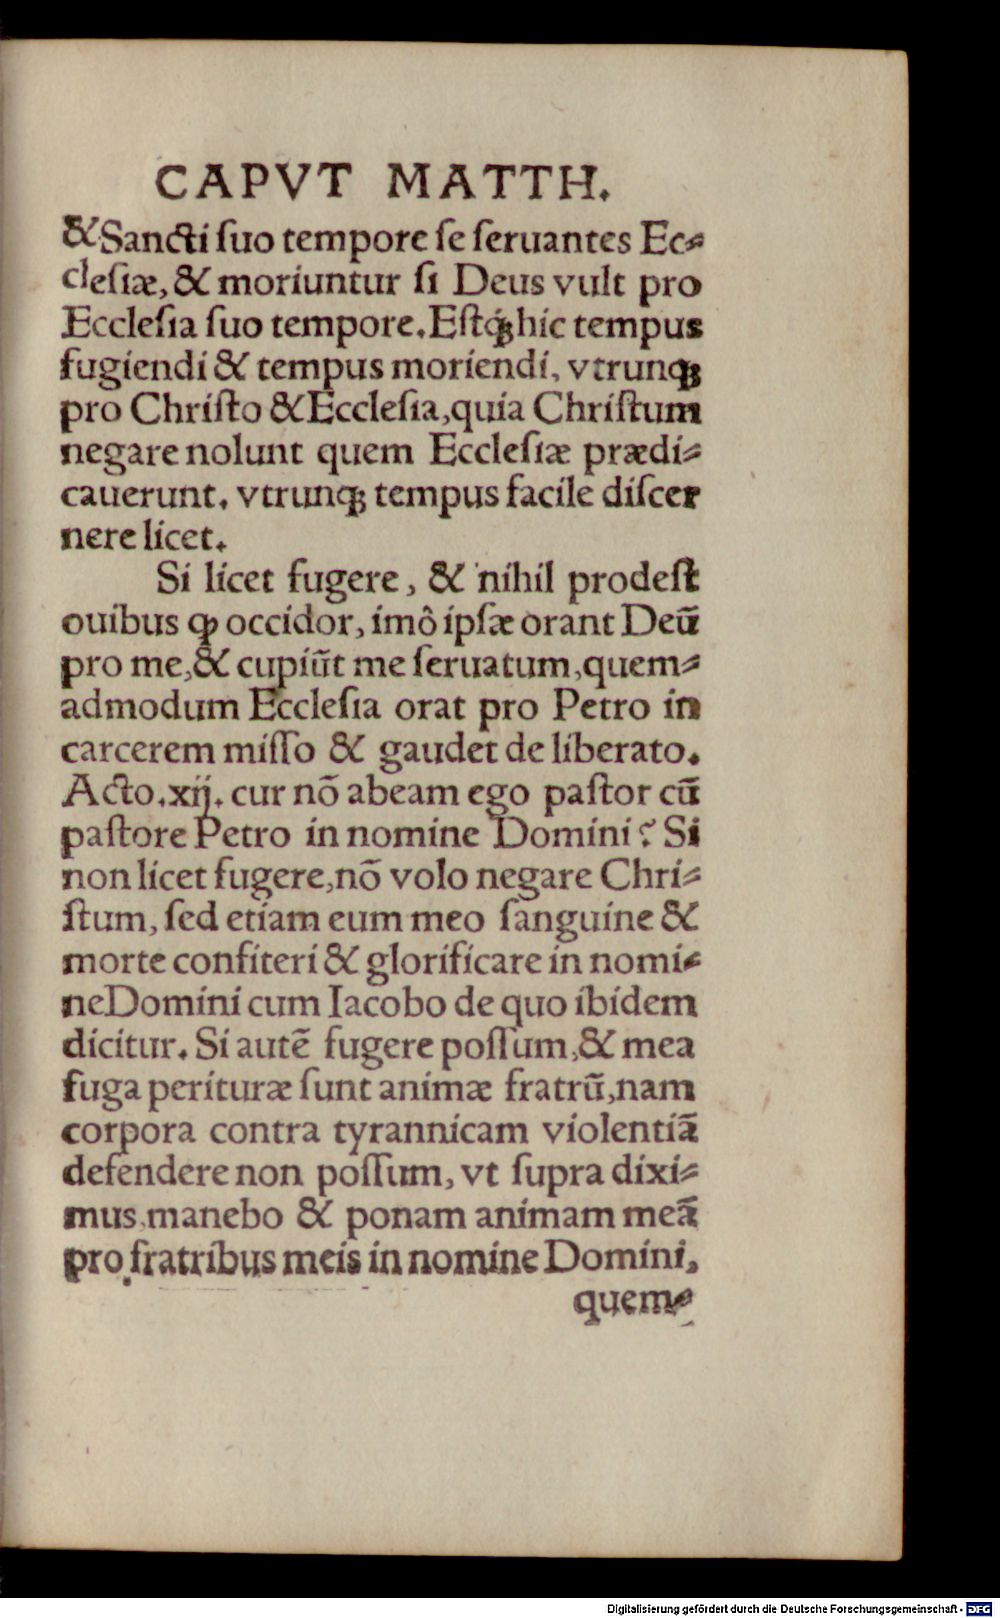 CAPVT MATTH.
& Sancti ſuo tempore ſe ſeruantes Ec⸗
cleſiæ, & moriuntur ſi Deus vult pro
Eccleſia ſuo tempore. Eſtq́ꝫ hic tempus
fugiendi & tempus moriendi, vtrunqꝫ
pro Chriſto & Eccleſia, quia Chriſtum
negare nolunt quem Eccleſiæ prædi⸗
cauerunt. vtrunqꝫ tempus facile diſcer
nere licet.
Si licet fugere, & nihil prodeſt
ouibus ꝙ occidor, imô ipſæ orant Deū
pro me, & cupiūt me ſeruatum, quem⸗
admodum Eccleſia orat pro Petro in
carcerem miſſo & gaudet de liberato.
Acto. xij. cur nō abeam ego paſtor cū
paſtore Petro in nomine Domini? Si
non licet fugere, nō volo negare Chri⸗
ſtum, ſed etiam eum meo ſanguine &
morte confiteri & glorificare in nomi⸗
ne Domini cum Iacobo de quo ibidem
dicitur. Si autē fugere poſſum, & mea
fuga perituræ ſunt animæ fratrū, nam
corpora contra tyrannicam violentiā
defendere non poſſum, vt ſupra dixi⸗
mus, manebo & ponam animam meā
pro fratribus meis in nomine Domini,
quem⸗
Digitalisierung gefördert durch die Deutsche Forschungsgemeinschaft - DFG